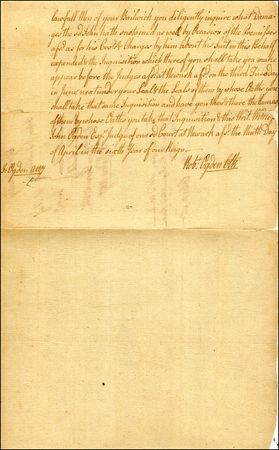 lawfull Men of your Bailwick you diligently inquire what Dama-
ges the sd John hath sustained as well by Occasion of the Premises
afsd as for his Costs & Charges by him about his Suit in this Behalf
expended & the Inquisition which thereof you shall take you make
appear before the Judges afsd at Newark afsd on the third Tuesday
in June next under your Seal & the Seals of them by whose Oaths you
shall take that same Inquisition and have you then & there the Names
of them by whose Oaths you take that Inquisition & this Writ. Witness
John Ogden Esqr Judge of our sd Court at Newark afsd the Ninth Day
of April in the sixth Year of our Reign.
Ogden Atty
Robt Ogden Clk